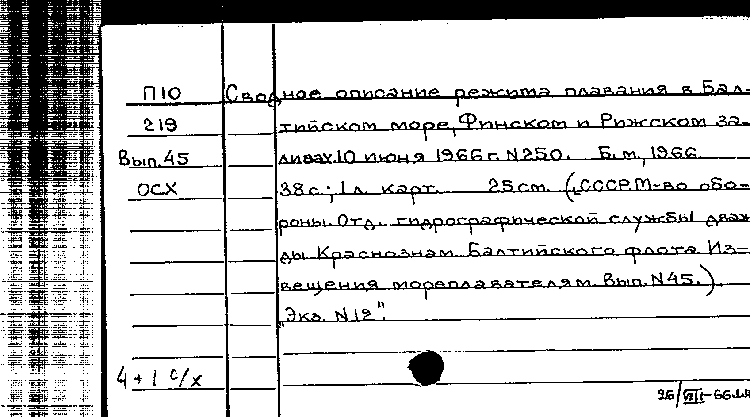 П10 Сводное описание режима плавания в Бал-
219 тийском море, Финском и Рижском за-
Вып. 45 ливах. 10 июня 1966 г. N250. Б.м., 1966
ОСХ 38 с.; 1 л. карт. 25 см. (СССР. М-во обо-
роны. Отд. гидрографической службы дваж-
ды Краснознам. Балтийского флота. Из-
вещения мореплавателям. Вып. N45.)
"Экз. N12".
4 + 1 с/х
26/VIII-66